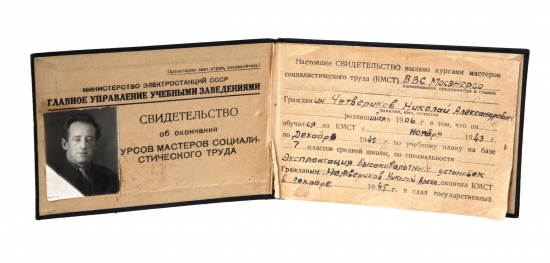 Пролетарии всех стран, соединяйтесь!
МИНИСТЕРСТВО ЭЛЕКТРОСТАНЦИЙ СССР
ГЛАВНОЕ УПРАВЛЕНИЕ УЧЕБНЫМИ ЗАВЕДЕНИЯМИ
СВИДЕТЕЛЬСТВО
об окончании
УРСОВ МАСТЕРОВ СОЦИАЛИ-
СТИЧЕСКОГО ТРУДА
Настоящее СВИДЕТЕЛЬСТВО выдано курсами мастеров
социалистического труда (КМСТ) ВВС Мосэнерго
наименование предприятия и главка
Гражданин Четвериков Николай Александрович
фамилия, имя, отчество
родившийся 1906 г. в том, что он
обучался на КМСТ с ноября 1943 г.
по декабрь 1945 г. по учебному плану на базе
7 классов средней школы, по специальности
Эксплоатация высоковольтных установок
Гражданин Четвериков Николай Алекс. окончил КМСТ
в декабре 1945 г. и сдал государственный